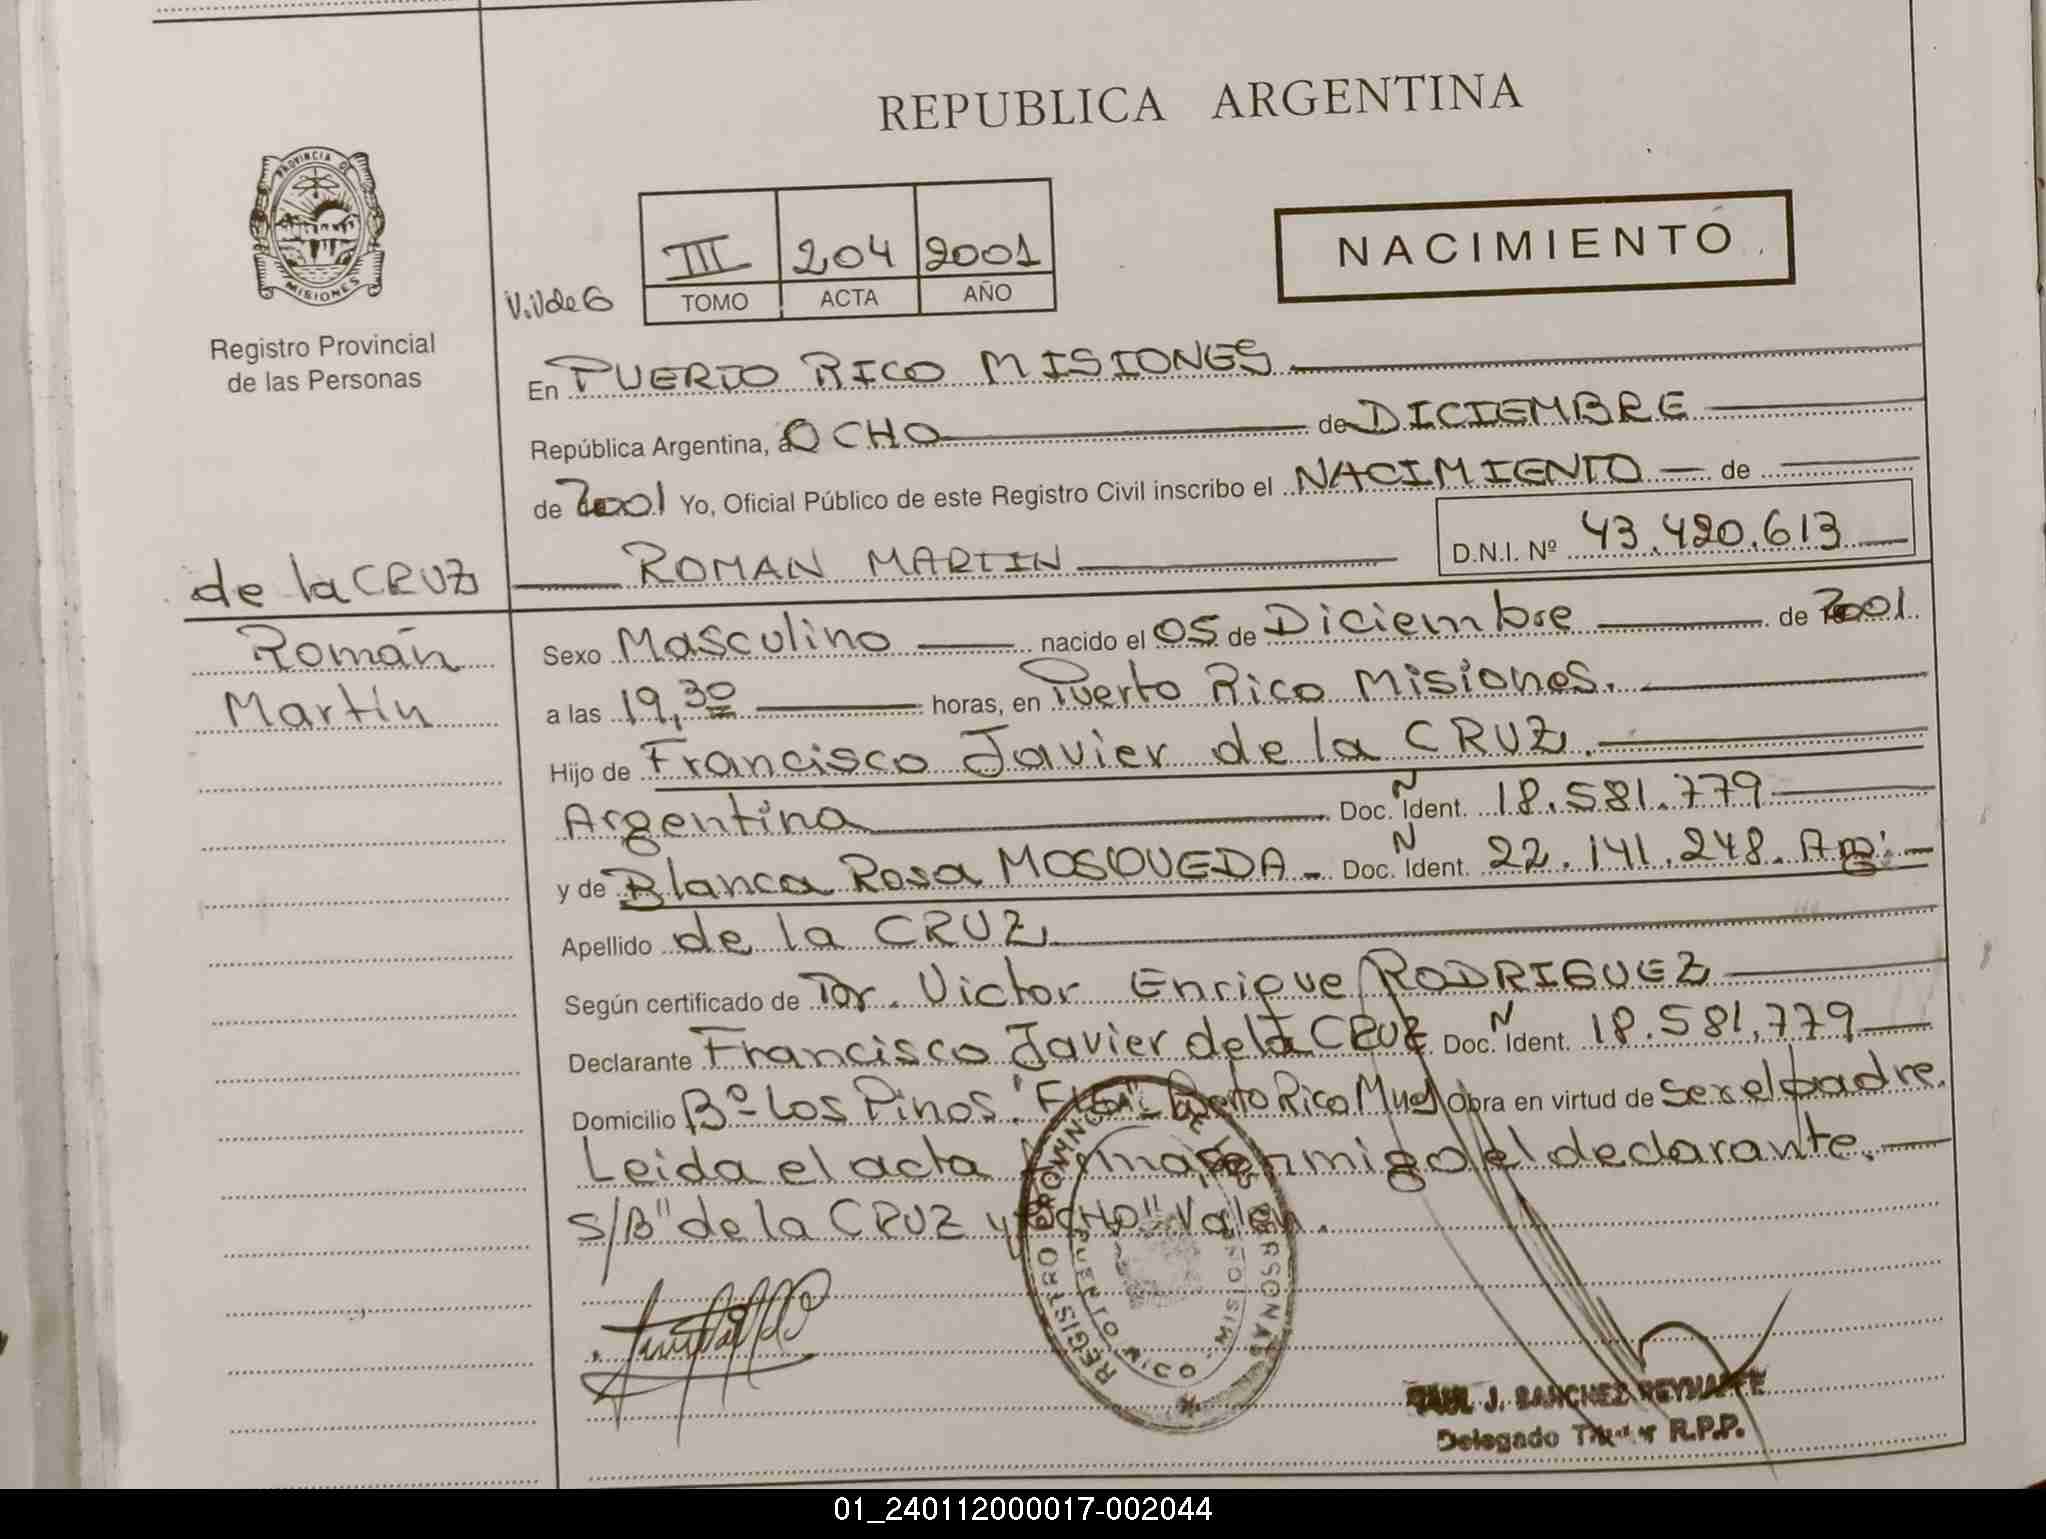 REPUBLICA ARGENTINA
PROVINCIA DE MISIONES
Registro Provincial
de las Personas
III 204 2001
TOMO ACTA AÑO
NACIMIENTO
En PUERTO RICO MISIONES
República Argentina, a OCHO de DICIEMBRE
de 2001 Yo, Oficial Público de este Registro Civil inscribo el NACIMIENTO de
ROMAN MARTIN D.N.I. Nº 43.420.613
de la CRUZ
Román
Martín
Sexo Masculino nacido el 05 de Diciembre de 2001
a las 19,30 horas, en Puerto Rico Misiones.
Hijo de Francisco Javier de la CRUZ.
Argentina Doc. N Ident. 18.581.779
y de Blanca Rosa MOSQUEDA - Doc. N Ident. 22.141.248. Arg.
Apellido de la CRUZ
Según certificado de Dr. Victor Enrique RODRIGUEZ
Declarante Francisco Javier de la CRUZ Doc. N Ident. 18.581,779
Domicilio Bº Los Pinos Puerto Rico Mnes Obra en virtud de ser el padre.
Leida el acta firma conmigo el declarante.
S/B "de la CRUZ y OCHO" Valen.
REGISTRO PROVINCIAL DE LAS PERSONAS
MISIONES
RAUL J. SANCHEZ REYNAFFE
Delegado Titular R.P.P.
01_240112000017-002044